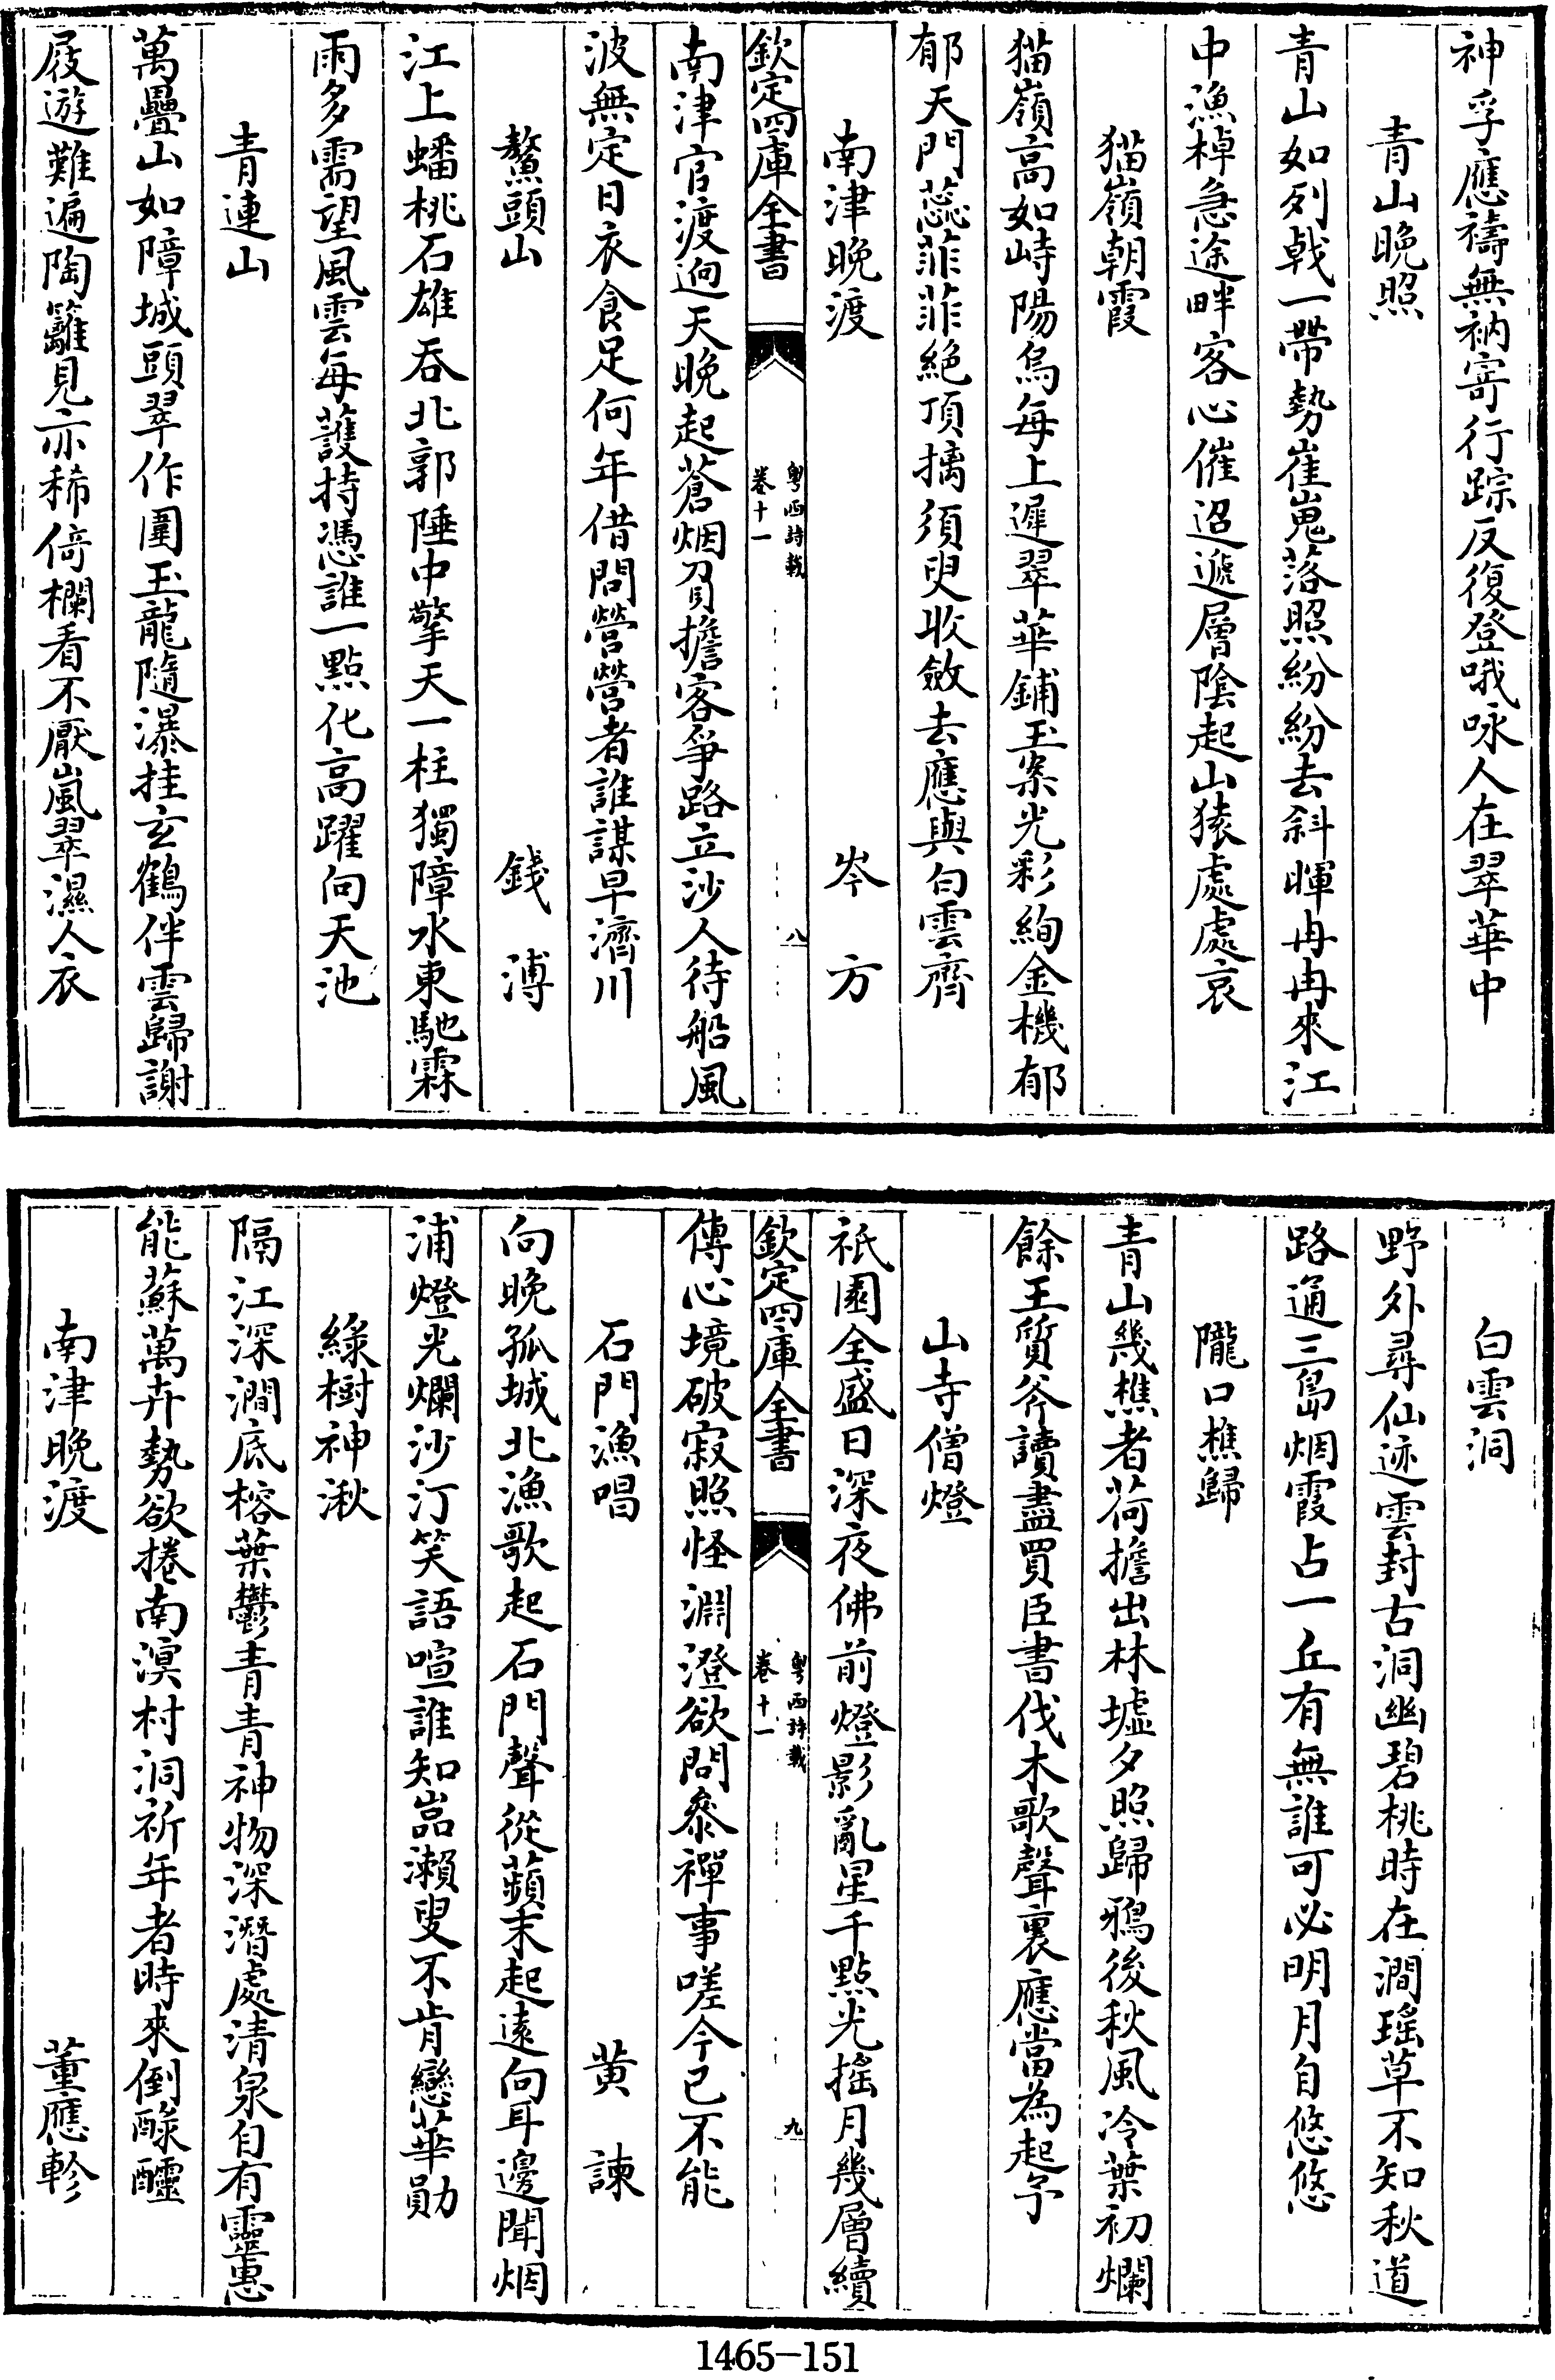 神孚應禱無衲寄行踪反復登哦咏人在翠華中
青山晚照
青山如列戟一帶勢崔嵬落照紛紛去斜暉冉冉來江
中漁棹急途畔客心催迢遞層陰起山猿處處哀
猫嶺朝霞
猫嶺高如峙陽烏每上遲翠華鋪玉案光彩絢金機郁
郁天門蕊菲菲絶頂摛須臾收斂去應與白雲齊
南津晚渡 岑方
欽定四庫全書 粤西詩載 卷十一 八
南津官渡逈天晚起蒼烟負擔客爭路立沙人待船風
波無定日衣食足何年借問營營者誰謀早濟川
鰲頭山 錢溥
江上蟠桃石雄吞北郭陲中擎天一柱獨障水東馳霖
雨多需望風雲每護持憑誰一點化高躍向天池
青連山
萬疊山如障城頭翠作圍玉龍隨瀑挂玄鶴伴雲歸謝
屐遊難遍陶籬見亦稀倚欄看不厭嵐翠濕人衣
白雲洞
野外尋仙迹雲封古洞幽碧桃時在澗瑶草不知秋道
路通三島烟霞占一丘有無誰可必明月自悠悠
隴口樵歸
青山幾樵者荷擔出林墟夕照歸鴉後秋風冷葉初爛
餘王質斧讀盡買臣書伐木歌聲裏應當為起予
山寺僧燈
祇園全盛日深夜佛前燈影亂星千點光摇月幾層續
欽定四庫全書 粤西詩載 卷十一 九
傳心境破寂照怪淵澄欲問叅禪事嗟今已不能
石門漁唱 黄諫
向晚孤城北漁歌起石門聲從蘋末起遠向耳邊聞烟
浦燈光爛沙汀笑語喧誰知嵓瀨叟不肯戀華勛
緑樹神湫
隔江深澗底榕葉鬱青青神物深潛處清泉自有靈惠
能蘇萬卉勢欲捲南溟村洞祈年者時來倒醁醽
南津晚渡 董應軫
1465-151